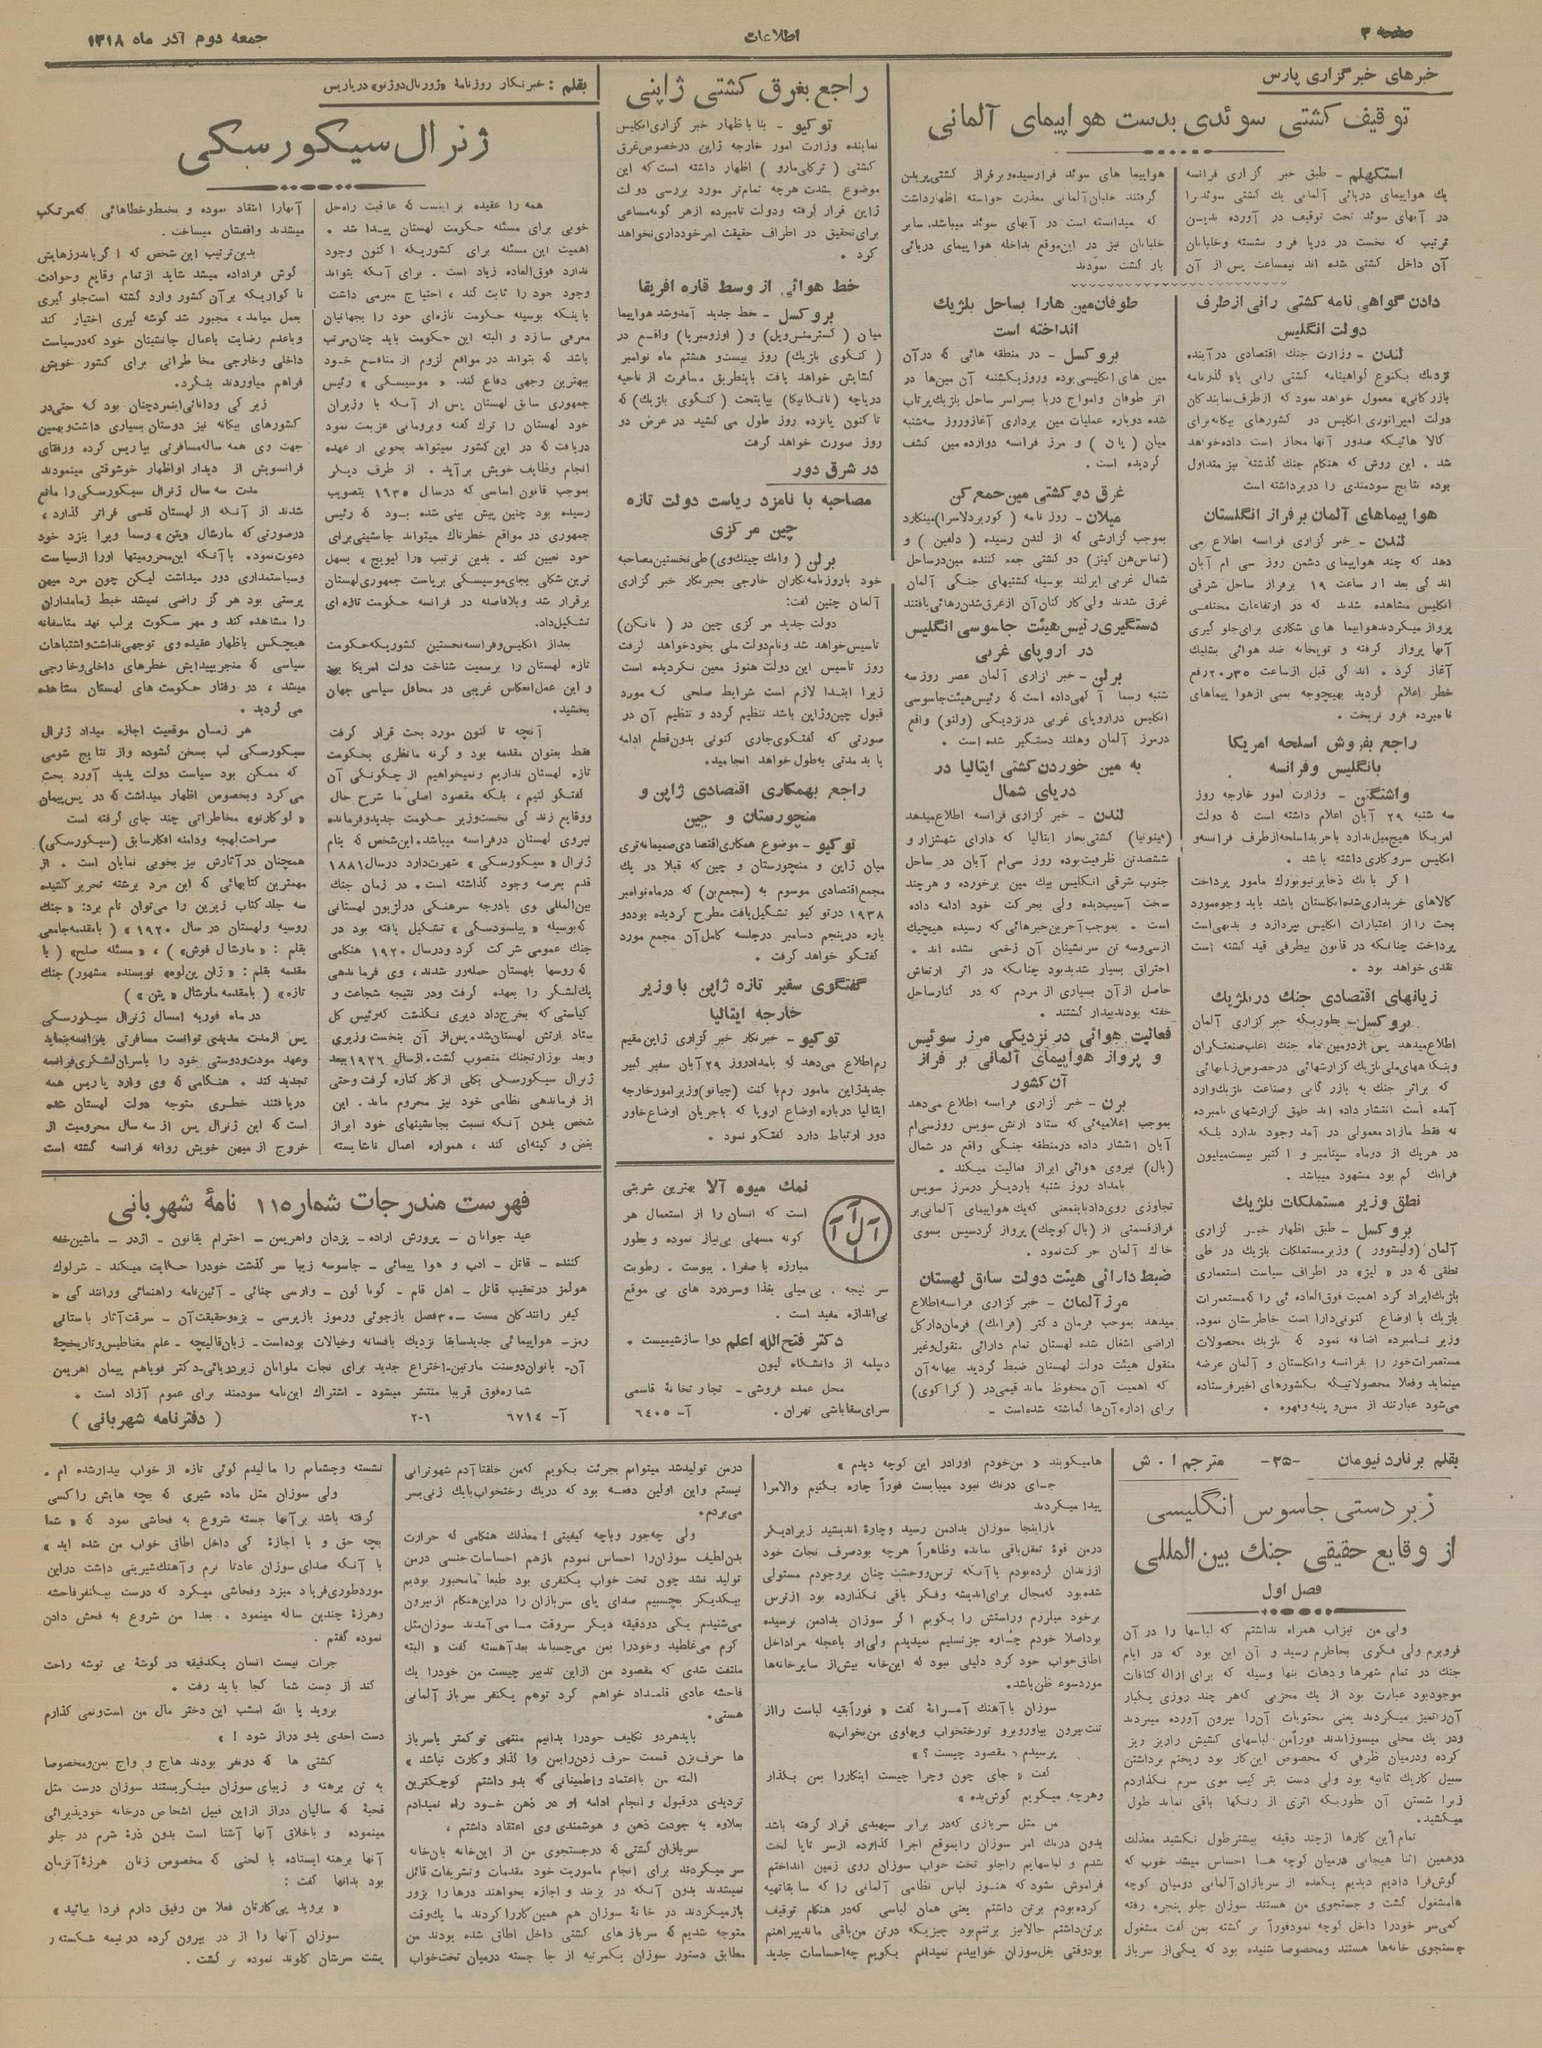 صفحه ۳
اطلاعات
جمعه دوم آذر ماه ۱۳۱۸
خبرهای خبرگزاری پارس
توقیف کشتی سوئدی بدست هواپیمای آلمانی
استکهلم - طبق خبر گزاری فرانسه
یك هواپیمای دریائی آلمانی یك کشتی سوئدیرا
در آبهای سوئد تحت توقیف در آورده بدین
ترتیب که نخست در دریا فرو نشسته وخلبانان
آن داخل کشتی شده اند نیمساعت پس از آن
هواپیما های سوئد فرارسیده وبرفراز کشتی پریدن
گرفتند خلبان آلمانی معذرت خواسته اظهارداشت
که میدانسته است در آبهای سوئد میباشد. سایر
خلبانان نیز در این موقع بداخله هواپیمای دریائی
باز گشت نمودند
دادن گواهی نامه کشتی رانی از طرف
دولت انگلیس
لندن - وزارت جنك اقتصادی درآینده
نزدیك یکنوع گواهینامه کشتی رانی یا« گذرنامه
بازرگانی» معمول خواهد نمود که ازطرف نمایندگان
دولت امپراتوری انگلیس در کشورهای بیگانه برای
کالا هائیکه صدور آنها مجاز است داده خواهد
شد . این روش که هنگام جنك گذشته نیز متداول
بوده نتایج سودمندی را دربرداشته است
هواپیماهای آلمان برفراز انگلستان
لندن - خبر گزاری فرانسه اطلاع می
دهد که چند هواپیمای دشمن روز سی ام آبان
اندکی بعد از ساعت ۱۹ برفراز ساحل شرقی
انگلیس مشاهده شدند که در ارتفاعات مختلفی
پرواز میکردند هواپیما های شکاری برای جلوگیری
آنها پرواز گرفته و توپخانه ضد هوائی شلیك
آغاز کرد . اندکی قبل ازساعت ۲۰٫۳۵ رفع
خطر اعلام گردید بهیچوجه بمبی ازهواپیماهای
نامبرده فرو نریخت .
راجع بفروش اسلحه امریکا
بانگلیس و فرانسه
واشنگتن - وزارت امور خارجه روز
سه شنبه ۲۹ آبان اعلام داشته است که دولت
امریکا هیچ میل ندارد باخرید اسلحه ازطرف فرانسه و
انگلیس سروکاری داشته باشد .
اگر بانك ذخایر نیویورك مامور پرداخت
کالاهای خریداری شده انگلستان باشد باید وجوه مورد
بحث را از اعتبارات انگلیس بپردازد و بدیهی است
پرداخت چنانکه در قانون بیطرفی قید گشته است
نقدی خواهد بود .
زیانهای اقتصادی جنك در بلژیك
بروکسل - بطوریکه خبر گزاری آلمان
اطلاع میدهد پس ازدومین ماه جنك اغلب صنعتگران
وبنگاههای ملی بلژیك گزارشهائی درخصوص زیانهائی
که براثر جنك به بازرگانی وصناعت بلژیك وارد
آمده است انتشار داده اند طبق گزارشهای نامبرده
نه فقط مازاد معمولی در آمد وجود ندارد بلکه
در هریك از دوماه سپتامبر و اکتبر بیست میلیون
فرانك کم بود مشهود میباشد .
نطق وزیر مستملکات بلژیك
بروکسل - طبق اظهار خبر گزاری
آلمان (ولیشوور) وزیرمستملکات بلژیك در طی
نطقی که در « لیژ» در اطراف سیاست استعماری
بلژیك ایراد کرد اهمیت فوق العاده ئی را که مستعمرات
بلژیك با اوضاع کنونی دارا است خاطرنشان نمود.
وزیر نامبرده اضافه نمود که بلژیك محصولات
مستعمرات خود را بفرانسه وانگلستان و آلمان عرضه
مینماید وفعلا محصولاتیکه بکشورهای اخیر فرستاده
می‌شود عبارتند از مس و پنبه و قهوه .
طوفان مین هارا بساحل بلژیك
انداخته است
بروکسل - در منطقه هائی که در آن
مین های انگلیسی بوده وروز یکشنبه آن مین‌ها در
اثر طوفان وامواج دریا بسراسر ساحل بلژیك پرتاب
شده دوباره عملیات مین برداری آغاز وروز سه شنبه
میان (پان) و مرز فرانسه دوازده مین کشف
گردیده است .
غرق دو کشتی مین جمع کن
میلان - روزنامه (کوریردلاسرا) مینگارد
بموجب گزارشی که از لندن رسیده (دلفین) و
(تماس هن کینز) دو کشتی جمع کننده مین در ساحل
شمال غربی ایرلند بوسیله کشتیهای جنگی آلمان
غرق شدند ولی کار کنان آن از غرق شدن رهائی یافتند
دستگیری رئیس هیئت جاسوسی انگلیس
در اروپای غربی
برلن - خبر گزاری آلمان عصر روز سه
شنبه رسما آگهی داده است که رئیس هیئت جاسوسی
انگلیس دراروپای غربی درنزدیکی (ونلو) واقع
درمرز آلمان وهلند دستگیر شده است .
به مین خوردن کشتی ایتالیا در
دریای شمال
لندن - خبر گزاری فرانسه اطلاع میدهد
(فینونیا) کشتی بخار ایتالیا که دارای ششهزار و
ششصد تن ظرفیت بوده روز سی ام آبان در ساحل
جنوب شرقی انگلیس بیك مین برخورده و هر چند
سخت آسیب دیده ولی بحرکت خود ادامه داده
است . بموجب آخرین خبرهائی که رسیده هیچیك
ازسی و سه تن سرنشینان آن زخمی نشده اند .
احتراق بسیار شدید بود چنانکه در اثر ارتعاش
حاصل از آن بسیاری از مردم که در کنار ساحل
خفته بودند بیدار گشتند .
فعالیت هوائی در نزدیکی مرز سوئیس
و پرواز هواپیمای آلمانی بر فراز
آن کشور
برن - خبر گزاری فرانسه اطلاع می‌دهد
بموجب اعلامیه‌ئی که ستاد ارتش سویس روز سی ام
آبان انتشار داده درمنطقه جنگی واقع در شمال
(بال) نیروی هوائی ابراز فعالیت میکند .
بامداد روز شنبه باردیگر درمرز سویس
تجاوزی روی داد باینمعنی که یك هواپیمای آلمانی بر
فراز قسمتی از (بال کوچك) پرواز کرد سپس بسوی
خاك آلمان حرکت نمود .
ضبط دارائی هیئت دولت سابق لهستان
مرز آلمان - خبر گزاری فرانسه اطلاع
میدهد بموجب فرمان دکتر (فرانك) فرمان دار کل
اراضی اشغال شده لهستان تمام دارائی منقول وغیر
منقول هیئت دولت لهستان ضبط گردید ببهانه آن
که اهمیت آن محفوظ ماند قیمی در (کراکوی)
برای اداره آن‌ها گماشته شده است -
راجع بغرق کشتی ژاپنی
توکیو - بنا باظهار خبر گزاری انگلیس
نماینده وزارت امور خارجه ژاپن درخصوص غرق
کشتی (ترکلی مارو) اظهار داشته است که این
موضوع بشدت هرچه تمام‌تر مورد بررسی دولت
ژاپن قرار گرفته ودولت نامبرده ازهر گونه مساعی
برای تحقیق در اطراف حقیقت امر خودداری نخواهد
کرد .
خط هوائی از وسط قاره افریقا
بروکسل - خط جدید آمدوشد هواپیما
میان (کسترمنس ویل) و (اوزومبریا) واقع در
(کنگوی بلژیك) روز بیست و هشتم ماه نوامبر
گشایش خواهد یافت باینطریق مسافرت از ناحیه
دریاچه (تانگانیکا) بپایتخت (کنگوی بلژیك) که
تا کنون پانزده روز طول می کشید در عرض دو
روز صورت خواهد گرفت
در شرق دور
مصاحبه با نامزد ریاست دولت تازه
چین مرکزی
برلن (وانك چینك وی) طی نخستین مصاحبه
خود باروزنامه نگاران خارجی بخبرنگار خبر گزاری
آلمان چنین گفت:
دولت جدید مرکزی چین در (نانکن)
تاسیس خواهد شد ونام دولت ملی بخود خواهد گرفت
روز تاسیس این دولت هنوز معین نگردیده است
زیرا ابتدا لازم است شرایط صلحی که مورد
قبول چین وژاپن باشد تنظیم گردد و تنظیم آن در
صورتی که گفتگوی جاری کنونی بدون قطع ادامه
یابد مدتی به‌طول خواهد انجامید.
راجع بهمکاری اقتصادی ژاپن و
منچورستان و چین
توکیو - موضوع همکاری اقتصادی صمیمانه تری
میان ژاپن و منچورستان و چین که قبلا در یك
مجمع اقتصادی موسوم به (مجمع ین) که درماه نوامبر
۱۹۳۸ درتوکیو تشکیل یافت مطرح گردیده بود دو
باره درپنجم دسامبر درجلسه کامل آن مجمع مورد
گفتگو خواهد گرفت .
گفتگوی سفیر تازه ژاپن با وزیر
خارجه ایتالیا
توکیو - خبرنگار خبر گزاری ژاپن مقیم
رم اطلاع می‌دهد که بامداد روز ۲۹ آبان سفیر کبیر
جدید ژاپن مامور رم با کنت (چیانو) وزیر امورخارجه
ایتالیا درباره اوضاع اروپا که باجریان اوضاع خاور
دور ارتباط دارد گفتگو نمود .
نمك میوه آلا بهترین شربتی
است که انسان را از استعمال هر
گونه مسهلی بی‌نیاز نموده و بطور
مبارزه با صفرا . یبوست . رطوبت
سر گیجه . بی‌میلی بغذا وسردرد های بی موقع
بی‌اندازه مفید است .
دکتر فتح‌الله اعلم دوا ساز شیمیست .
دیپلمه از دانشگاه لیون
محل عمده فروشی - تجارتخانهٔ قاسمی
سرای سقاباشی تهران. آ- ۶۴۰۵
بقلم : خبرنگار روزنامهٔ «ژورنال دوژنو» درپاریس
ژنرال سیکورسکی
همه را عقیده بر اینست که عاقبت راه حل
خوبی برای مسئله حکومت لهستان پیدا شد .
اهمیت این مسئله برای کشوریکه اکنون وجود
ندارد فوق‌العاده زیاد است . برای آنکه بتواند
وجود خود را ثابت کند ، احتیاج مبرمی داشت
باینکه بوسیله حکومت تازه‌ای خود را بجهانیان
معرفی سازد و البته این حکومت باید چنان مرتب
باشد که بتواند در مواقع لزوم از منافع خود
ببهترین وجهی دفاع کند. «موسیسکی» رئیس
جمهوری سابق لهستان پس از آنکه با وزیران
خود لهستان را ترك گفته و برومانی عزیمت نمود
دریافت که در این کشور نمیتواند بخوبی از عهده
انجام وظایف خویش برآید . از طرف دیگر
بموجب قانون اساسی که درسال ۱۹۳۵ بتصویب
رسیده بود چنین پیش بینی شده بود که رئیس
جمهوری در مواقع خطرناك میتواند جانشینی برای
خود تعیین کند . بدین ترتیب «را کیویچ» بسهل
ترین شکلی بجای موسیسکی بریاست جمهوری لهستان
برقرار شد وبلافاصله در فرانسه حکومت تازه ای
تشکیل داد.
بعداز انگلیس وفرانسه نخستین کشوریکه حکومت
تازه لهستان را برسمیت شناخت دولت امریکا بود
و این عمل انعکاس غریبی در محافل سیاسی جهان
بخشید.
آنچه تا کنون مورد بحث قرار گرفت
فقط بعنوان مقدمه بود و گرنه ما نظری بحکومت
تازه لهستان نداریم ونمیخواهیم از چگونگی آن
گفتگو کنیم ، بلکه مقصود اصلی ما شرح حال
ووقایع زندگی نخست وزیر حکومت جدید وفرمانده
نیروی لهستان درفرانسه میباشد. این شخص که بنام
ژنرال «سیکورسکی» شهرت دارد درسال ۱۸۸۱
قدم بعرصه وجود گذاشته است. در زمان جنك
بین‌المللی وی بادرجه سرهنگی در لژیون لهستانی
که بوسیله «پیلسودسکی» تشکیل یافته بود در
جنك عمومی شرکت کرد ودرسال ۱۹۲۰ هنگامی
که روسها بلهستان حمله‌ور شدند، وی فرماندهی
یك لشگر را بعهده گرفت ودر نتیجه شجاعت و
کیاستی که بخرج داد دیری نگذشت که رئیس کل
ستاد ارتش لهستان شد. پس از آن بنخست وزیری
وبعد بوزارت جنك منصوب گشت. ازسال ۱۹۲۶ ببعد
ژنرال سیکورسکی بکلی از کار کناره گرفت وحتی
از فرماندهی نظامی خود نیز محروم ماند. این
شخص بدون آنکه نسبت بجانشینهای خود ابراز
بغض و کینه‌ای کند ، همواره اعمال ناشایسته
آنهارا انتقاد نموده و بخبط وخطاهائی که مرتکب
میشدند واقفشان میساخت .
بدین‌ترتیب این شخص که اگر باندرزهایش
گوش فراداده میشد شاید از تمام وقایع وحوادث
ناگواریکه برآن کشور وارد گشته است جلوگیری
بعمل میامد، مجبور شد گوشه گیری اختیار کند
وباعدم رضایت باعمال جانشینان خود که در سیاست
داخلی وخارجی مخاطراتی برای کشور خویش
فراهم میاوردند بنگرد.
زیرکی ودانائی اینمرد چنان بود که حتی در
کشورهای بیگانه نیز دوستان بسیاری داشت و بهمین
جهت وی همه ساله مسافرتی بپاریس کرده ورفقای
فرانسویش از دیدار او اظهار خوشوقتی مینمودند
مدت سه سال ژنرال سیکورسکی را مانع
شدند از آنکه از لهستان قدمی فراتر گذارد ،
درصورتی که مارشال «پتن» رسما ویرا بنزد خود
دعوت نمود. با آنکه این محرومیتها اورا از سیاست
وسیاستمداری دور میداشت لیکن چون مرد میهن
پرستی بود هر گز راضی نمیشد خبط زمامداران
را مشاهده کند و مهر سکوت برلب نهد متاسفانه
هیچکس باظهار عقیده وی توجهی نداشت و اشتباهات
سیاسی که منجر بپیدایش خطرهای داخلی وخارجی
میشد ، در رفتار حکومت های لهستان مشاهده
می گردید .
هر زمان موقعیت اجازه میداد ژنرال
سیکورسکی لب بسخن گشوده واز نتایج شومی
که ممکن بود سیاست دولت پدید آورد بحث
می‌کرد وبخصوص اظهار میداشت که در پس پیمان
«لوکارنو» مخاطراتی چند جای گرفته است
صراحت لهجه ودامنه افکار سابق (سیکورسکی)
همچنان درآثارش نیز بخوبی نمایان است . از
مهمترین کتابهائی که این مرد برشته تحریر کشیده
سه جلد کتاب زیرین را می‌توان نام برد: «جنك
روسیه ولهستان در سال ۱۹۲۰» (با مقدمه جامعی
بقلم : «مارشال فوش») ، «مسئله صلح» (با
مقدمه بقلم : «ژان پن لوه» نویسنده مشهور) جنك
تازه» (با مقدمه مارشال «پتن»)
در ماه فوریه امسال ژنرال سیکورسکی
پس ازمدت مدیدی توانست مسافرتی بفرانسه بنماید
وعهد مودت ودوستی خود را باسران لشکری فرانسه
تجدید کند . هنگامی که وی وارد پاریس همه
دریافتند خطری متوجه دولت لهستان شده
است که این ژنرال پس از سه سال محرومیت از
خروج از میهن خویش روانه فرانسه گشته است
فهرست مندرجات شماره ۱۱۵ نامهٔ شهربانی
عید جوانان - پرورش اراده - یزدان واهریمن - احترام بقانون - اژدر - ماشین خفه
کننده - قاتل - ادب و هوا پیمائی - جاسوسه زیبا سرگذشت خودرا حکایت میکند - شرلوك
هولمز درتعقیب قاتل - اهل قلم - گویا لون - وارسی جنائی - آئین‌نامه راهنمائی ورانندگی -
کیفر رانندگان مست - ۳۰فصل بازجوئی ورموز بازپرسی - بزه وحقیقت آن - سرقت آثار باستانی
رمز - هواپیمائی جدید سابقا نزدیك بافسانه وخیالات بوده است - زبان قالیچه - علم مغناطیس وتاریخچهٔ
آن - بانوان دوست مارتین - اختراع جدید برای نجات ملوانان زیردریائی - دکتر فوباهم پیمان اهریمن
شماره فوق قریبا منتشر میشود - اشتراك این‌نامه سودمند برای عموم آزاد است .
آ- ۶۷۱۴ ۲-۱ (دفترنامه شهربانی)
بقلم برنارد نیومان -۳۵- مترجم ا . ش
زبردستی جاسوس انگلیسی
از وقایع حقیقی جنك بین‌المللی
فصل اول
ولی من تیزاب همراه نداشتم که لباسها را در آن
فروبرم ولی فکری بخاطرم رسید و آن این بود که در ایام
جنك در تمام شهرها ودهات تنها وسیله که برای ازاله کثافات
موجود بود عبارت بود از یك مخزنی که هر چند روزی یکبار
آن‌را تمیز میکردند یعنی محتویات آن را بیرون آورده میبردند
ودر یك محلی میسوزاندند فوراً من لباسهای کشیش را ریز ریز
کرده ودرمیان ظرفی که مخصوص این کار بود ریختم برداشتن
سبیل کار یك ثانیه بود ولی دست بترکیب موی سرم نگذاردم
زیرا شستن آن بطوریکه اثری از رنگها باقی نماند طول
میکشید.
تمام این کارها ازچند دقیقه بیشتر طول نکشید معذلك
درهمین اثنا هیجانی درمیان کوچه ها احساس میشد خوب که
گوش فرا دادیم دیدیم یکعده از سربازان آلمانی درمیان کوچه
هامشغول گشت و جستجوی من هستند سوزان جلو پنجره رفته
کمی سر خودرا داخل کوچه نمود فوراً بر گشته بمن گفت مشغول
جستجوی خانه‌ها هستند ومخصوصا شنیده بود که یکی از سرباز
هامیگویند «من خودم اورا در این کوچه دیدم»
جای درنك نبود میبایست فوراً چاره بکنیم والا مرا
پیدا میکردند
باز اینجا سوزان بدادمن رسید وچارهٔ اندیشید زیرا دیگر
درمن قوهٔ تعقل باقی نمانده وظاهراً هرچه بود صرف نجات خود
اززندان کرده بودم با آنکه ترس ووحشت چنان بروجودم مستولی
شده بود که مجال برای اندیشه وفکر باقی نگذارده بود از ترس
برخود میلرزم وراستش را بگویم اگر سوزان بدادمن نرسیده
بود اصلا خودم چاره جز تسلیم نمیدیدم ولی او باعجله مرا داخل
اطاق خواب خود کرد دلیلی نبود که این خانه بیش از سایر خانه‌ها
مورد سوء ظن باشد.
سوزان با آهنك آمرانهٔ گفت «فوراً بقیه لباست را از
تنت بیرون بیاور و برو توی رختخواب وپهلوی من بخواب»
پرسیدم «مقصود چیست؟»
گفت «جای چون وچرا چیست اینکاررا بمن بگذار
وهرچه میگویم گوش بده»
من مثل سربازی که در برابر سپهبدی قرار گرفته باشد
بدون درنك امر سوزان را بموقع اجرا گذارده از سر تا پا لخت
شدم و لباسهایم را جلو تخت خواب سوزان روی زمین انداختم
فراموش نشود که هنوز لباس نظامی آلمانی را که سابقا تهیه
کرده بودم برتن داشتم یعنی همان لباسی که در هنگام توقیف
برتن داشتم حالا نیز برتنم بود چیزیکه درتن من باقی ماند پیراهنم
بود وقتی بغل سوزان خوابیدم نمیدانم بگویم چه احساسات جدید
درمن تولید شد میتوانم بجرئت بگویم که من خلقتا آدم شهوترانی
نیستم واین اولین دفعه بود که در یك رختخواب بایك زنی بسر
می‌بردم.
ولی چه‌جور وباچه کیفیتی! معذلك هنگامی که حرارت
بدن لطیف سوزان را احساس نمودم بازهم احساسات جنسی درمن
تولید نشد چون تخت خواب یکنفری بود طبعا ما مجبور بودیم
بیکدیگر بچسبیم صدای پای سربازان را دراین هنگام ازبیرون
می‌شنیدم یکی دودقیقه دیگر سروقت ما می آمدند سوزان مثل
کرم می‌غلطید وخودرا بمن می‌چسباند بعد آهسته گفت «البته
ملتفت شدی که مقصود من از این تدبیر چیست من خودرا یك
فاحشه عادی قلمداد خواهم کرد توهم یکنفر سرباز آلمانی
هستی.
بایدهردو تکلیف خودرا بدانیم منتهی تو کمتر باسرباز
ها حرف بزن قسمت حرف زدن را بمن واگذار وکارت نباشد»
البته من با اعتماد واطمینانی که بدو داشتم کوچکترین
تردیدی درقبول وانجام ادامه او در ذهن خود راه نمیدادم
بعلاوه به جودت ذهن و هوشمندی وی اعتقاد داشتم .
سربازان گشتی که درجستجوی من از این خانه بان خانه
سر میکردند برای انجام ماموریت خود مقدمات وتشریفات قائل
نمیشدند بدون آنکه در بزنند و اجازه بخواهند درها را بزور
باز میکردند در خانهٔ سوزان هم همین کار را کردند ما یك وقت
متوجه شدیم که سربازهای گشتی داخل اطاق شده بودند من
مطابق دستور سوزان یکمرتبه از جا جسته درمیان تخت خواب
نشسته وچشمانم را مالیدم گوئی تازه از خواب بیدار شده ام .
ولی سوزان مثل ماده شیری که بچه هایش را کسی
گرفته باشد برآنها جسته شروع به فحاشی نمود که «شما
بچه حق و با اجازهٔ کی داخل اطاق خواب من شده اید»
با آنکه صدای سوزان عادتا نرم و آهنك شیرینی داشت دراین
مورد طوری فریاد میزد وفحاشی میکرد که درست بیکنفر فاحشه
وهرزهٔ چندین ساله مینمود . بعد از من شروع به فحش دادن
نموده گفتم .
جرات نیست انسان یکدقیقه در گوشهٔ بی توشه راحت
کند از دست شما کجا باید رفت .
بروید یا الله امشب این دختر مال من است ونمی گذارم
دست احدی بدو دراز شود !»
گشتی ها که دونفر بودند هاج و واج بمن ومخصوصا
به تن برهنه و زیبای سوزان مینگریستند سوزان درست مثل
قحبهٔ که سالیان دراز ازاین قبیل اشخاص درخانه خودپذیرائی
مینموده و باخلاق آنها آشنا است بدون ذرهٔ شرم در جلو
آنها برهنه ایستاده با لحنی که مخصوص زنان هرزهٔ آنزمان
بود بدانها گفت :
«بروید پی کارتان فعلا من رفیق دارم فردا بیائید»
سوزان آنها را از در بیرون کرده درنیمه شکسته را
پشت سرشان کلوند نموده بر گشت .